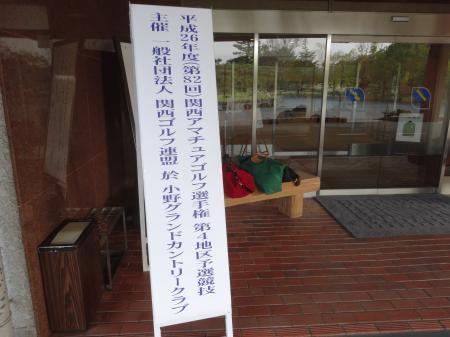 平成26年度(第82回)関西アマチュアゴルフ選手権 第4地区予選競技
主催 一般社団法人 関西ゴルフ連盟 於 小野グランドカントリークラブ